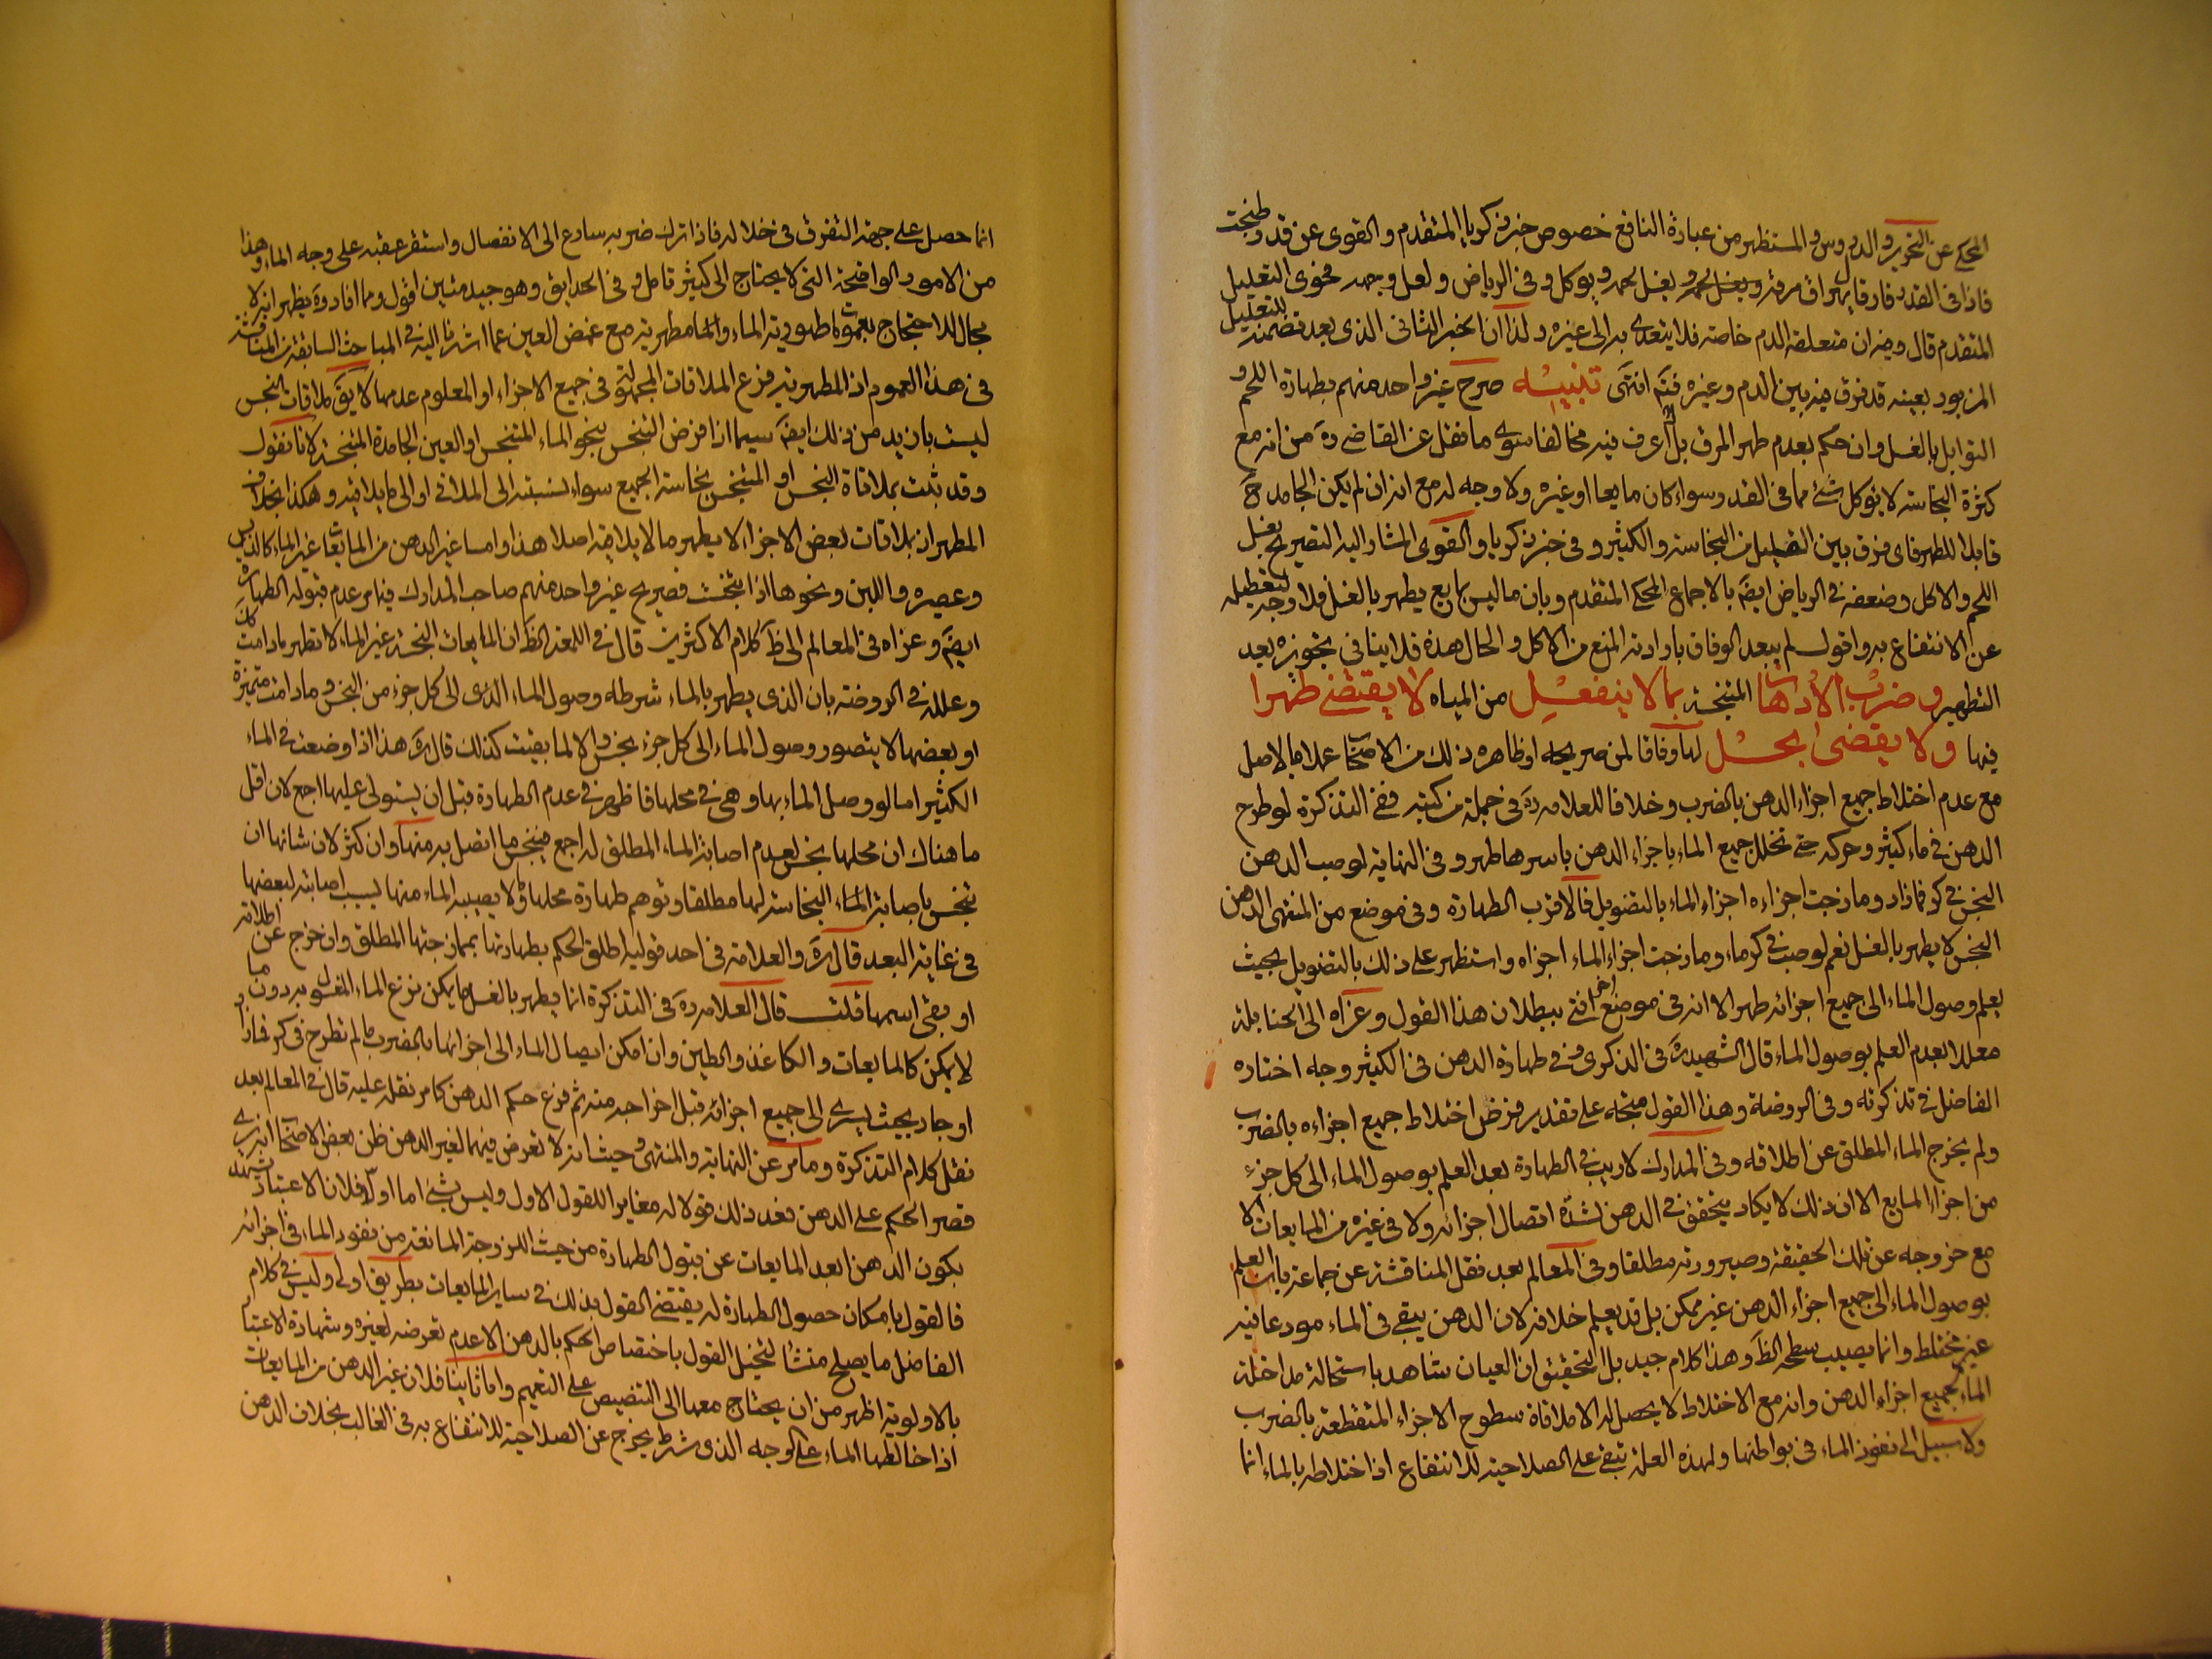 المحكي عن التحرير والدروس والمستظهر من عبارة النافع خصوص خبر زكريا المتقدم والقوى عن قدر طبخت
فاذا في القدر فارة يهراق مرقه ويغسل لحمه ويوكل وفي الرياض ولعل وجهه فحوى التعليل
المتقدم قال وفيه ان متعلقه الدم خاصة فلا يتعدى به الى غيره ولذا ان الخبر الثاني الذي بعد تضمنه للتعليل
المزبور بعينه قد فرق فيه بين الدم وغيره فتم انتهى تنبيه صرح غير واحد منهم بطهارة اللحم و
التوابل بالغسل وان حكم بعدم طهر المرق بل لا اعرف فيه مخالفا سوى ما نقل عن القاضي ره من انه مع
كثرة النجاسة لا يؤكل شئ مما في القدر سواء كان مايعا او غيره ولا وجه له مع انه ان لم يكن الجامد ح
قابلا للطهر فاى فرق بين القليل من النجاسة والكثير وفي خبر زكريا والقوى المشار اليه التصريح بغسل
اللحم والاكل وضعفه في الرياض ايضا بالاجماع المحكي المتقدم وبان ما ليس بمايع يطهر بالغسل فلا وجه لتعطيله
عن الانتفاع به واقول لم يبعد الوفاق بارادته المنع من الاكل والحال هذه فلا ينافي تجوزه بعد
التطهير وضرب الادهان المتنجسة بما لا ينفعل من المياه لا يقتضي طهرا
فيها ولا يقضي بحل لها وفاقا لمن صريحه او ظاهره ذلك من الاصحاب عملا بالاصل
مع عدم اختلاط جميع اجزاء الدهن بالضرب وخلافا للعلامه ره في جملة من كتبه ففي التذكرة لو طرح
الدهن في ماء كثير وحركه حتى تخلل جميع الماء باجزاء الدهن باسرها طهر وفي النهاية لو صب الدهن
النجس في كر فمازاد ومازجت اجزاءه اجزاء الماء بالتضويل فالاقرب الطهارة وفي موضع من المنتهى الدهن
النجس لا يطهر بالغسل نعم لو صب في كر ماء ومازجت اجزاء الماء اجزاه واستظهر على ذلك بالتضويل بحيث
يعلم وصول الماء الى جميع اجزائه طهر الا انه في موضع اخر افتى ببطلان هذا القول وعزاه الى الحنابلة
معللا بعدم العلم بوصول الماء قال الشهيد ره في الذكرى وفي طهارة الدهن في الكثير وجه اختاره
الفاضل في تذكرته وفي الروضة وهذا القول متجه على تقدير فرض اختلاط جميع اجزاءه بالضرب
ولم يخرج الماء المطلق عن اطلاقه وفي المدارك لا ريب في الطهارة بعد العلم بوصول الماء الى كل جزء
من اجزاء المايع الا ان ذلك لا يكاد يتحقق في الدهن لشدة اتصال اجزائه ولا في غيره من المايعات الا
مع خروجه عن تلك الحقيقة وصيرورته مطلقا وفي المعالم بعد نقل المناقشة عن جماعة بان العلم
بوصول الماء الى جميع اجزاء الدهن غير ممكن بل قد يعلم خلافه لان الدهن يبقى في الماء مودعا فيه
غير مختلط وانما يصيب سطحه الظ وهذا كلام جيد بل التحقيق ان العيان شاهد باستحالة مداخلة
الماء لجميع اجزاء الدهن وانه مع الاختلاط لا يحصل له الا ملاقاة سطوح الاجزاء المتقطعة بالضرب
ولا سبيل الى نفوذ الماء في بواطنها ولهذه العلة تبقى على الصلاحية للانتفاع اذا اختلاطه بالماء انما
انما حصل على جهة التفرق في خلاله فاذا ترك ضربه سارع الى الانفصال واستقر عقبه على وجه الماء وهذا
من الامور الواضحة التي لا يحتاج الى كثير تامل وفي الحدايق وهو جيد متين اقول ومما افادوه يظهر انه لا
مجال للاحتجاج بعموم طهورية الماء والماء مطهريته مع غمض العين عما اشرنا اليه في المباحث السابقة من المناقشة
في هذا العموم اذ المطهرية فرع الملاقات المجهولة في جميع الاجزاء او المعلوم عدمها لا يق ملاقات النجس
ليست بازيد من ذلك ايض سيما اذا فرض التنجس بنحو الماء المتنجس او العين الجامدة المتنجسة لانا نقول
وقد ثبت بملاقاة النجس او المتنجس نجاسة الجميع سواء لنسبته الى الملاقى او الى ما يلاقيه وهكذا بخلاف
المطهر اذ بملاقات بعض الاجزاء لا يطهر ما لا يلاقيه اصلا هذا واما غير الدهن من المايعات غير الماء كالدبس
وعصيره واللبن ونحوها اذا تنجست فصريح غير واحد منهم صاحب المدارك فيما مر عدم قبوله الطهارة
ايض وعزاه في المعالم الى ظ كلام الاكثرين قال في اللمعة الظ ان المايعات النجسة غير الماء لا تطهر مادامت كك
وعلله في الروضة بان الذي يطهر بالماء شرطه وصول الماء الذي الى كل جزء من النجس ومادامت متميزة
او بعضها لا يتصور وصول الماء الى كل جزء نجس والا لما بقيت كذلك قال ره هذا اذا وضعت في الماء
الكثير اما لو وصل الماء بها وهي في محلها فاظهر في عدم الطهارة قبل ان يستولي عليها اجمع لان اقل
ما هناك ان محلها نجس لعدم اصابة الماء المطلق له اجمع فينجس ما اتصل به منها وان كثر لان شانها ان
تنجس باصابة الماء النجاسة لها مطلقا وتوهم طهارة محلها ولا يصيبه الماء منها بسبب اصابته لبعضها
في غاية البعد قال ره والعلامة في احد قوليه اطلق الحكم بطهارتها بممازجتها المطلق وان خرج عن اطلاقه
او بقى اسمها قلت قال العلامه ره في التذكرة انما يطهر بالغسل ما يمكن نزع الماء المغسول به دون ما
لا يمكن كالمايعات والكاغذ والطين وان امكن ايصال الماء الى اجزائها بالضرب ما لم تطرح في كر فمازاد
او جار بحيث يسرى الى جميع اجزائه قبل اخراجه منه ثم فرع حكم الدهن كما مر نقله عليه قال في المعالم بعد
نقل كلام التذكرة وما مر عن النهاية والمنتهى وحيث انه لا تعرض فيهما لغير الدهن ظن بعض الاصحاب انه يرى
قصر الحكم على الدهن فعد ذلك قولا له مغايرا للقول الاول وليس بشئ اما اولا فلان الاعتبار يشهد
بكون الدهن ابعد المايعات عن قبول الطهارة من حيث اللزوجة المانعة من نفوذ الماء في اجزائه
فالقول بامكان حصول الطهارة له يقتضي القول بذلك في ساير المايعات بطريق اولى وليس في كلام
الفاضل ما يصلح منشأ لتخيل القول باختصاص الحكم بالدهن الا عدم تعرضه لغيره وشهادة الاعتبار
بالاولوية اظهر من ان يحتاج معها الى التنصيص على التعميم واما ثانيا فلان غير الدهن من المايعات
اذا خالطها الماء على الوجه الذي شرط يخرج عن الصلاحية للانتفاع به في الغالب بخلاف الدهن